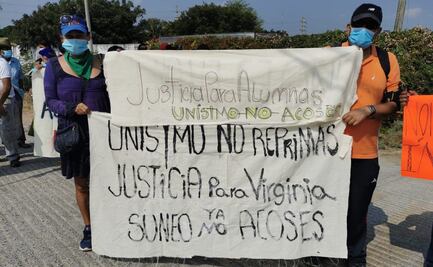 Justicia Para Alumnas
UNISTMO NO ACOSES
UNISTMO NO REPRIMAS
JUSTICIA Para Virginia
SUNEO YA NO ACOSES